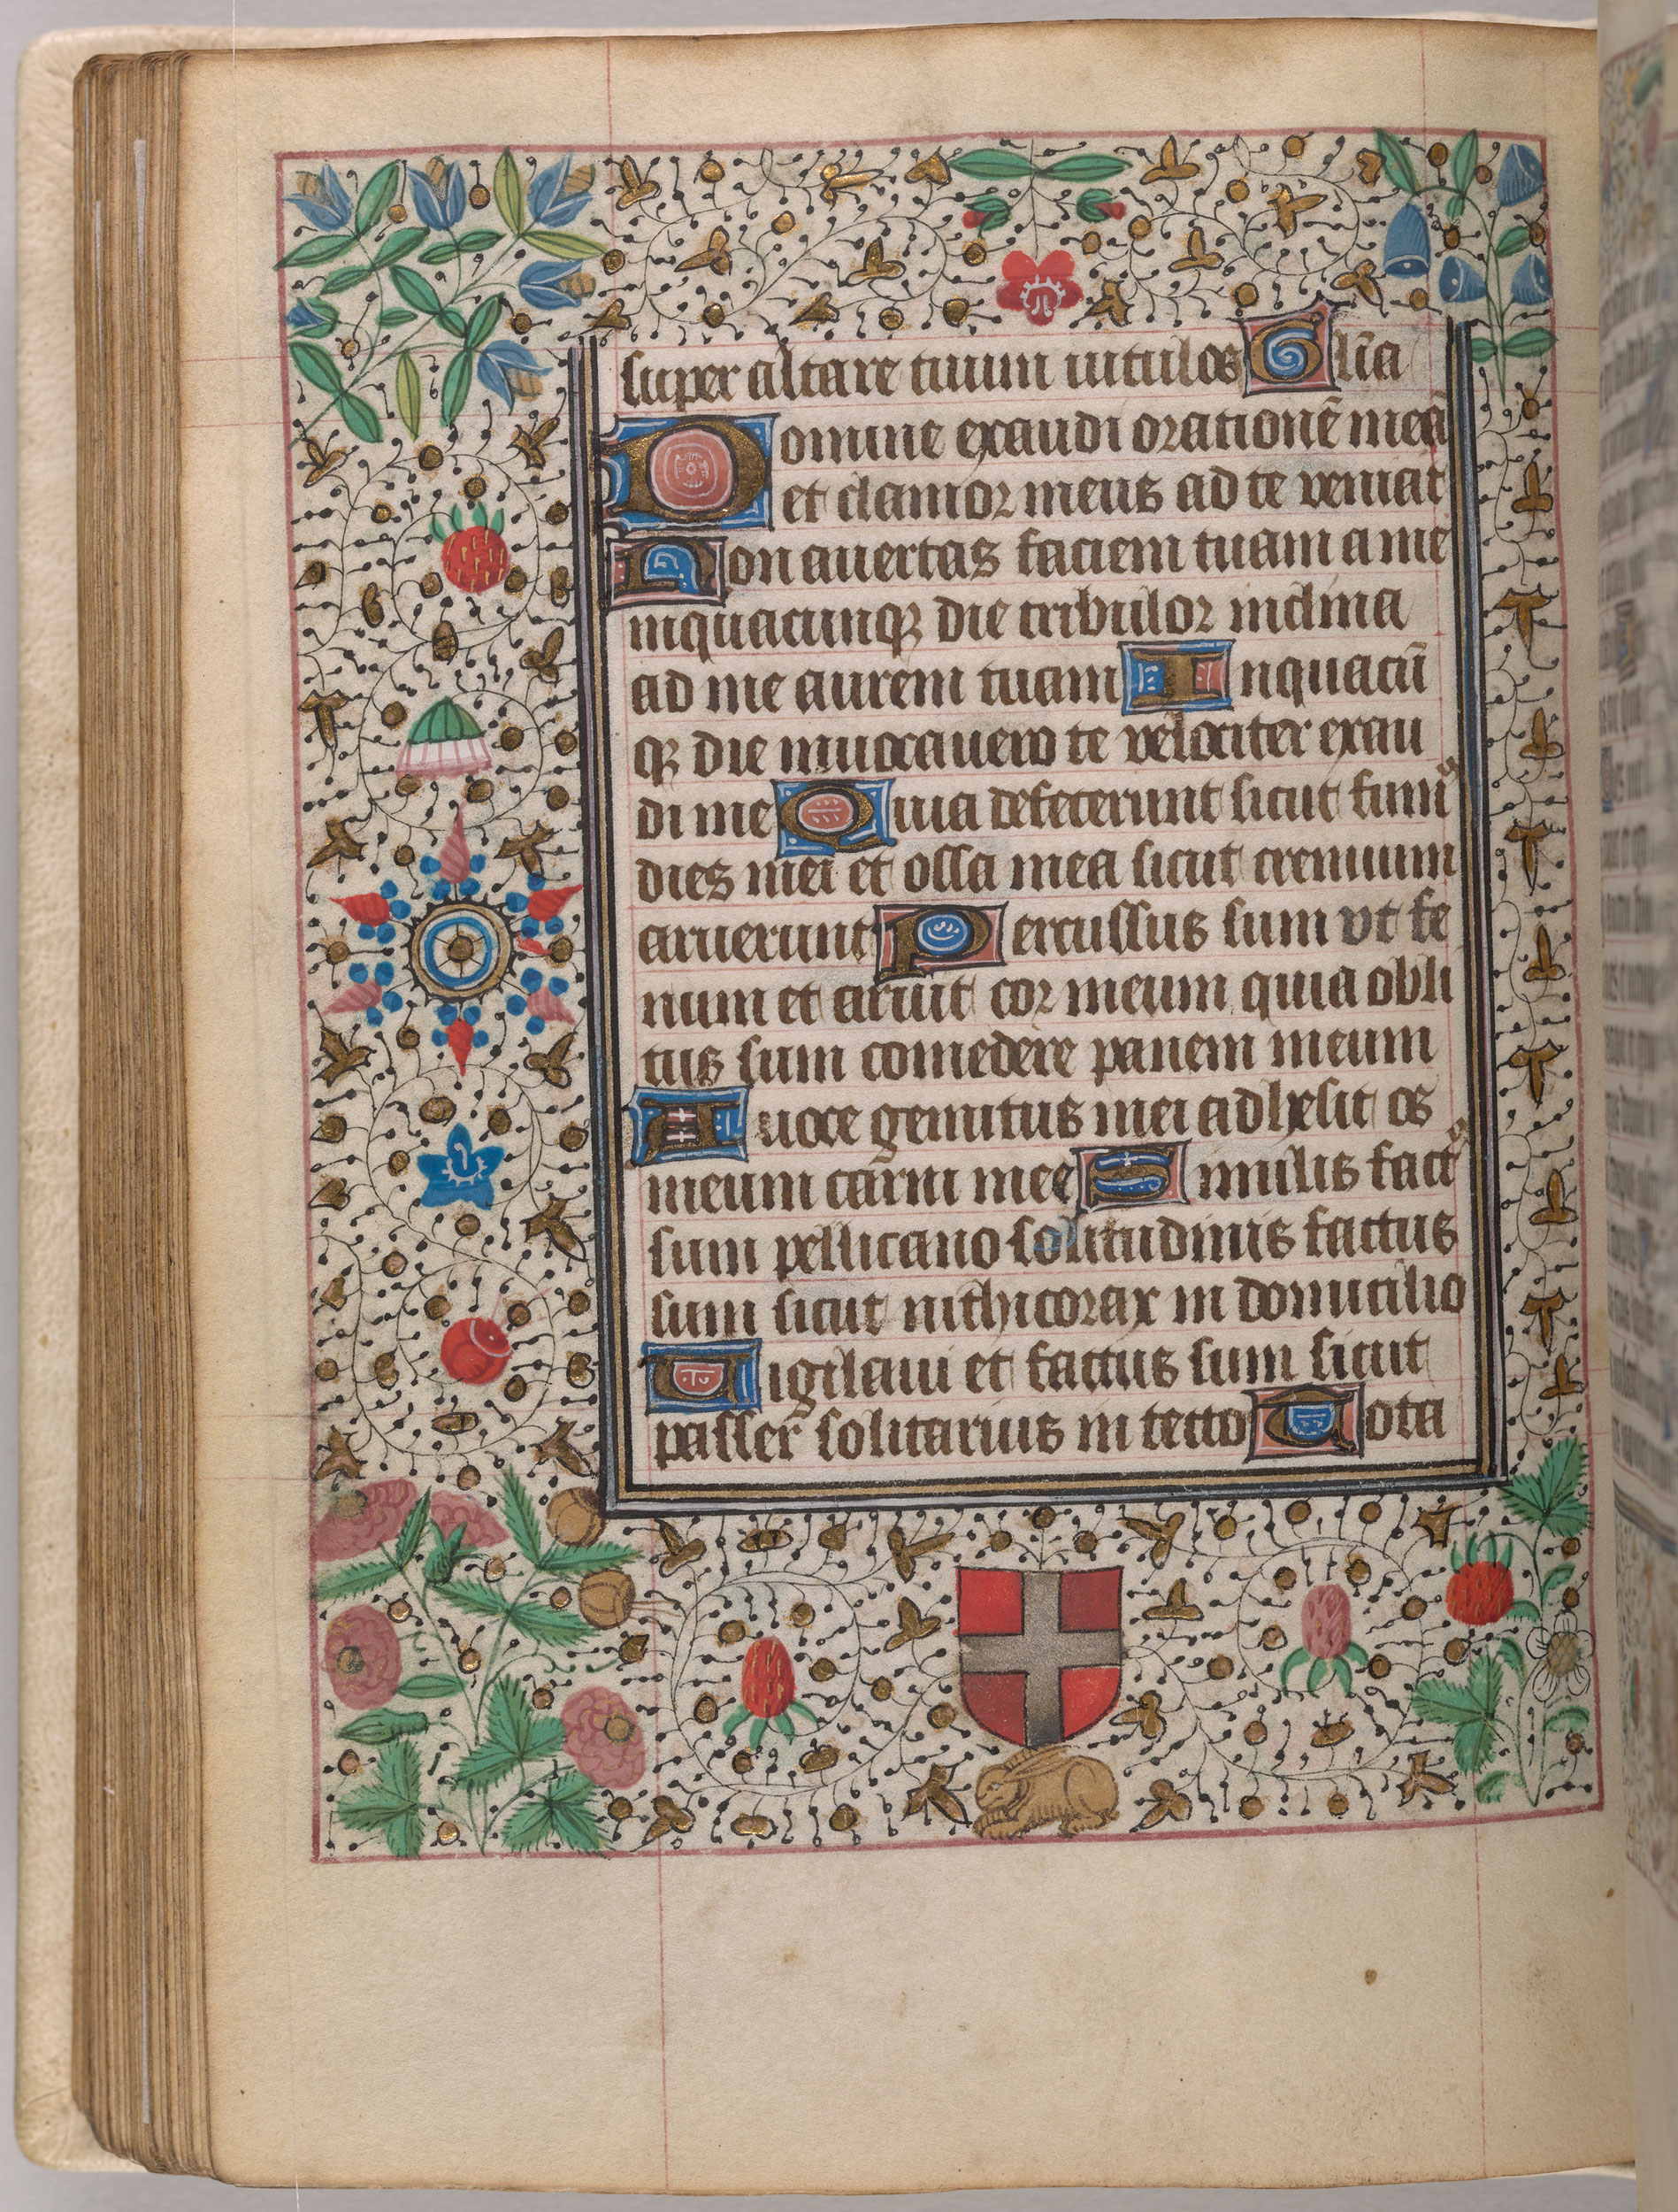 super altare tuum uitulos Glia
Domine exaudi orationē meā
et clamor meus ad te veniat
Non auertas faciem tuam a me
inquacunqꝫ die tribulor inclina
ad me aurem tuam Inquacū
qꝫ die inuocauero te velociter exau
di me Quia defecerunt sicut fumꝰ
dies mei et ossa mea sicut cremium
aruerunt Percussus sum vt fe
num et aruit cor meum quia obli
tus sum comedere panem meum
A uoce gemitus mei adhesit os
meum carni mee Similis factꝰ
sum pellicano solitudinis factus
sum sicut nithicorax in domicilio
Uigilaui et factus sum sicut
passer solitarius in tecto Tota